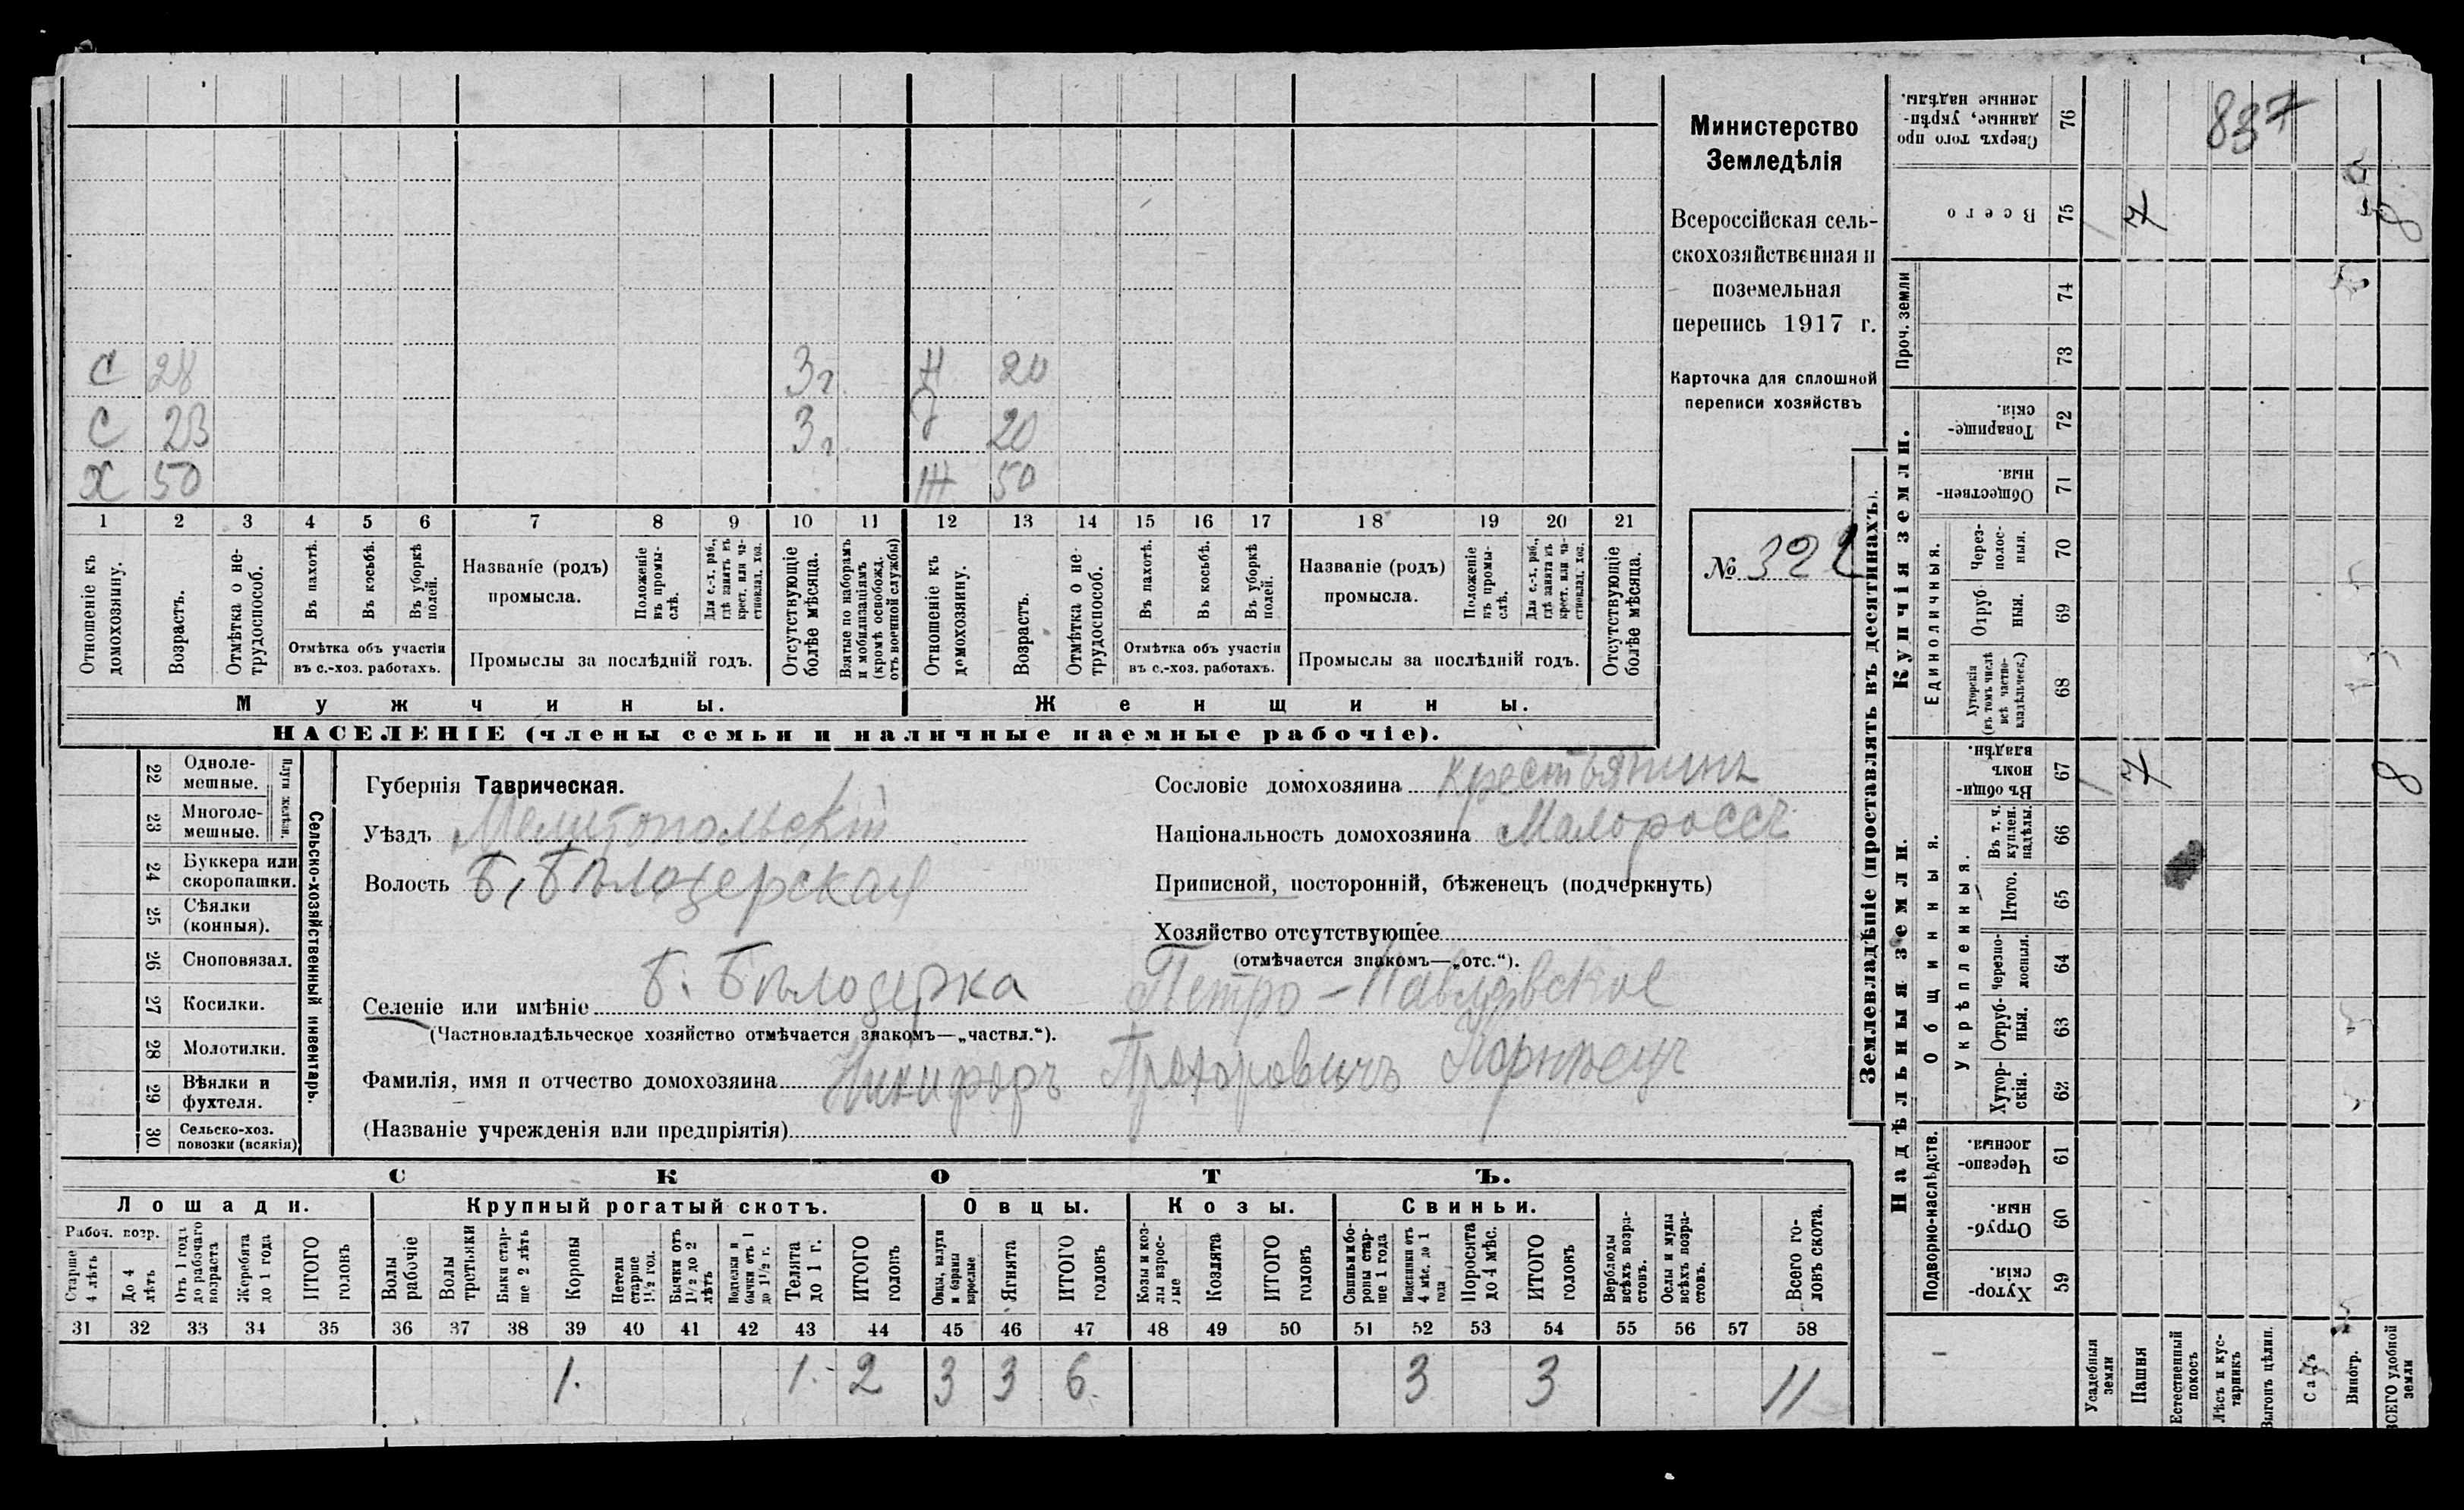 С 28 3 г. Н 20
С 23 3 г. 20
Х 50 Ж 50
1 2 3 4 5 6 7 8 9 10 11 12 13 14 15 16 17 18 19 20 21
Отношеніе къ домохозяину.
Возрастъ.
Отмѣтка о не-трудоспособ.
Въ пахотѣ.
Въ косьбѣ.
Въ уборкѣ полей.
Отмѣтка объ участіи
въ с.-хоз. работахъ.
Названіе (родъ)
промысла.
Положеніе въ промы-слѣ.
Для с.-х. раб., гдѣ занятъ въ крест. или ча-стновлад. хоз.
Промыслы за послѣдній годъ.
Отсутствующіе болѣе мѣсяца.
Взятые по наборамъ и мобилизаціямъ (кромѣ освобожд. отъ военной службы)
Отношеніе къ домохозяину.
Возрастъ.
Отмѣтка о не-трудоспособ.
Въ пахотѣ.
Въ косьбѣ.
Въ уборкѣ полей.
Отмѣтка объ участіи
въ с.-хоз. работахъ.
Названіе (родъ)
промысла.
Положеніе въ промы-слѣ.
Для с.-х. раб., гдѣ занята въ крест. или ча-стновлад. хоз.
Промыслы за послѣдній годъ.
Отсутствующіе болѣе мѣсяца.
Мужчины. Женщины.
НАСЕЛЕНІЕ (члены семьи и наличные наемные рабочіе).
Министерство
Земледѣлія
Всероссійская сель-
скохозяйственная и
поземельная
перепись 1917 г.
Карточка для сплошной
переписи хозяйствъ
№ 322
22 Одноле-мешные.
23 Многоле-мешные.
Плуги желѣзн.
24 Буккера или скоропашки.
25 Сѣялки (конныя).
26 Сноповязал.
27 Косилки.
28 Молотилки.
29 Вѣялки и фухтеля.
30 Сельско-хоз. повозки (всякія)
Сельско-хозяйственный инвентарь.
Губернія Таврическая.
Уѣздъ Мелитопольскій
Волость Б. Бѣлозерская
Селеніе или имѣніе Б. Бѣлозерка Петро-Павловское
(Частновладѣльческое хозяйство отмѣчается знакомъ—„частвл.“).
Фамилія, имя и отчество домохозяина Никифоръ Прохоровичъ Корнѣецъ
(Названіе учрежденія или предпріятія)
Сословіе домохозяина Крестьянинъ
Національность домохозяина Малороссъ
Приписной, посторонній, бѣженецъ (подчеркнуть)
Хозяйство отсутствующее
(отмѣчается знакомъ—„отс.“).
СКОТЪ.
Лошади. Крупный рогатый скотъ. Овцы. Козы. Свиньи.
Рабоч. возр.
Старше 4 лѣтъ
До 4 лѣтъ
Отъ 1 года до рабочаго возраста
Жеребята до 1 года
ИТОГО головъ
Волы рабочіе
Волы трстьяки
Быки стар-ше 2 лѣтъ
Коровы
Нетели старше 1½ год.
Бычки отъ 1½ до 2 лѣтъ
Подтелки и бычки отъ 1 до 1½ г.
Телята до 1 г.
ИТОГО головъ
Овцы, валухи и бараны взрослые
Ягнята
ИТОГО головъ
Козы и коз-лы взрос-лые
Козлята
ИТОГО головъ
Свиньи и бо-ровы стар-ше 1 года
Подсвинки отъ 4 мѣс. до 1 года
Поросята до 4 мѣс.
ИТОГО головъ
Верблюды всѣхъ возра-стовъ.
Ослы и мулы всѣхъ возра-стовъ.
Всего го-ловъ скота.
31 32 33 34 35 36 37 38 39 40 41 42 43 44 45 46 47 48 49 50 51 52 53 54 55 56 57 58
1. 1. 2 3 3 6. 3 3 11
Землевладѣніе (проставлять въ десятинахъ).
Купчія земли.
Надѣльныя земли.
Сверхъ того про данные, укрѣп-ленные надѣлы. 76 837
Всего 75 1 7 8
Проч. земли 74
73
Товарище-скія. 72
Обществен-ныя 71
Единоличныя.
Через-полос-ныя. 70
Отруб-ныя. 69
Хуторскія (въ томъ числѣ всѣ частно-владѣльческ.) 68
Общинныя.
Въ общи-номъ владѣн. 67 1 7 8
Укрѣпленныя.
Въ т. ч. куплен. надѣлы. 66
Итого. 65
Черезпо-лосныя. 64
Отруб-ныя. 63
Хутор-скія. 62
Подворно-наслѣдств.
Черезпо-лосныя. 61
Отруб-ныя. 60
Хутор-скія. 59
Усадебныя земли
Пашня
Естественный покосъ
Лѣсъ и кус-тарникъ
Выгонъ цѣлин.
Садъ
Виногр.
ВСЕГО удобной земли